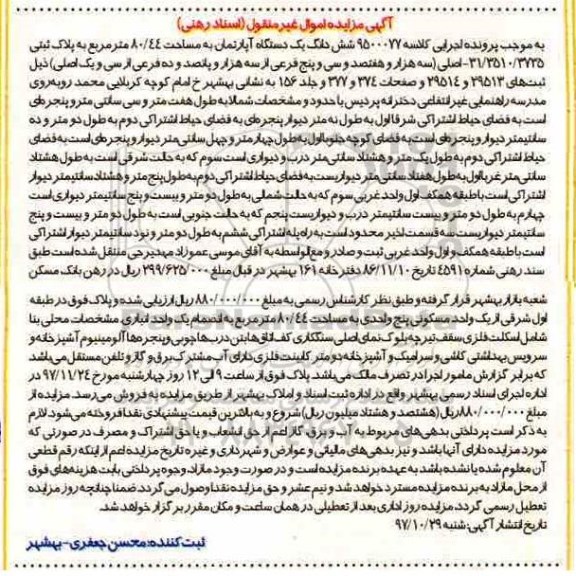 آگهی مزایده اموال غیر منقول (اسناد رهنی)
به موجب پرونده اجرایی کلاسه ۹۵۰۰۰۷۷ شش دانگ یک دستگاه آپارتمان به مساحت ۸۰/۴۴ متر مربع به پلاک ثبتی
۳۱/۳۵۱۰/۳۷۳۵-اصلی (سه هزار و هفتصد و سی و پنج فرعی از سه هزار و پانصد و ده فرعی از سی و یک اصلی) ذیل
ثبت‌های ۲۹۵۱۳ و ۲۹۵۱۴ و صفحات ۳۷۴ و ۳۷۷ و جلد ۱۵۶ به نشانی بهشهر خ امام کوچه کربلایی محمد روبه‌روی
مدرسه راهنمایی غیر انتفاعی دخترانه پردیس با حدود و مشخصات شمالا به طول هفت متر و سی سانتی متر و پنجره‌ای
است به فضای حیاط اشتراکی شرقا اول به طول نه متر دیوار و پنجره‌ای به فضای حیاط اشتراکی دوم به طول دو متر و ده
سانتیمتر دیوار و پنجره‌ای است به فضای کوچه جنوبا اول به طول چهار متر و چهل سانتی‌متر دیوار و پنجره‌ای است به فضای
حیاط اشتراکی دوم به طول یک متر و هشتاد سانتی متر درب و دیواری است سوم که به حالت شرقی است به طول هشتاد
سانتی متر غربا اول به طول هفتاد سانتی متر دیواریست به فضای حیاط اشتراکی دوم به طول پنج متر و هشتاد سانتیمتر دیوار
اشتراکی است با طبقه همکف اول واحد غربی سوم که به حالت شمالی به طول دو متر و بیست و پنج سانتیمتر دیواری است
چهارم به طول دو متر و بیست سانتیمتر درب و دیواریست پنجم که به حالت جنوبی است به طول دو متر و بیست و پنج
سانتیمتر دیواریست سه قسمت اخیر محدود است به راه پله اشتراکی ششم به طول دو متر و نود سانتیمتر دیوار اشتراکی
است با طبقه همکف و اول واحد غربی ثبت و صادر و مع‌الواسطه به آقای موسی عموزاد مهدیرجی منتقل شده است طبق
سند رهنی شماره ۴۵۹۱ تاریخ ۸۶/۱۱/۱۰ دفترخانه ۱۶۱ بهشهر در قبال مبلغ ۲۹۹/۶۲۵/۰۰۰ ریال در رهن بانک مسکن
شعبه بازار بهشهر قرار گرفته و طبق نظر کارشناس رسمی به مبلغ ۸۸۰/۰۰۰/۰۰۰ ریال ارزیابی شده و پلاک فوق در طبقه
اول شرقی از یک واحد مسکونی پنج واحدی به مساحت ۸۰/۴۴ متر مربع به انضمام یک واحد انباری مشخصات محلی بنا
شامل اسکلت فلزی سقف تیرچه بلوک نمای اصلی سنگکاری کف اتاق‌ها بتن درب‌ها چوبی و پنجره‌ها آلومینیوم آشپزخانه و
سرویس بهداشتی کاشی و سرامیک و آشپزخانه دو متر کابینت فلزی دارای آب مشترک برق و گاز و تلفن مستقل می‌باشد
که برابر گزارش مامور اجرا در تصرف مالک می‌باشد. پلاک فوق از ساعت ۹ الی ۱۲ روز چهارشنبه مورخ ۹۷/۱۱/۲۴ در
اداره اجرای اسناد رسمی بهشهر واقع در اداره ثبت اسناد و املاک بهشهر از طریق مزایده به فروش می‌رسد. مزایده از
مبلغ ۸۸۰/۰۰۰/۰۰۰ ریال (هشتصد و هشتاد میلیون ریال) شروع و به بالاترین قیمت پیشنهادی نقدا فروخته می‌شود. لازم
به ذکر است پرداختی بدهی‌های مربوط به آب و برق گاز اعم از حق انشعاب و یا حق اشتراک و مصرف در صورتی که
مورد مزایده دارای آنها باشد و نیز بدهی‌های مالیاتی و عوارض و شهرداری و غیره تاریخ مزایده اعم از اینکه رقم قطعی
آن معلوم شده یا نشده باشد به عهده برنده مزایده است و در صورت وجود مازاد، وجوه پرداختی بابت هزینه‌های فوق
از محل مازاد به برنده مزایده مسترد خواهد شد و نیم عشر و حق مزایده نقدا وصول می گردد ضمنا چنانچه روز مزایده
تعطیل رسمی گردد. مزایده روز اداری بعد از تعطیلی در همان ساعت و مکان مقرر برگزار خواهد شد.
تاریخ انتشار آگهی: شنبه ۹۷/۱۰/۲۹
ثبت کننده: محسن جعفری-بهشهر